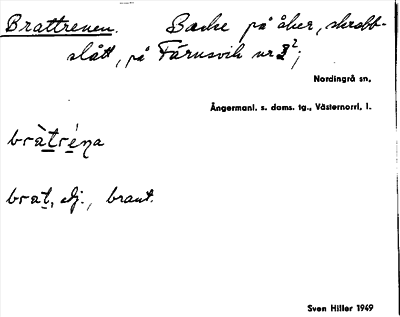 Brattrenen. Backe på åker, skrabb-
slått, på Färusvik nr 3²;
Nordingrå sn,
Ångermanl. s. doms. tg., Västernorrl. l.
bràtréna
brat, adj., brant.
Sven Hiller 1949